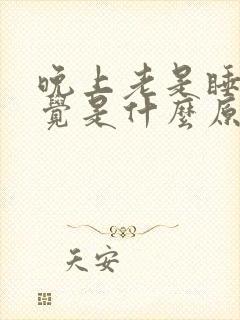 晚上老是睡
覺是什麼原
天安